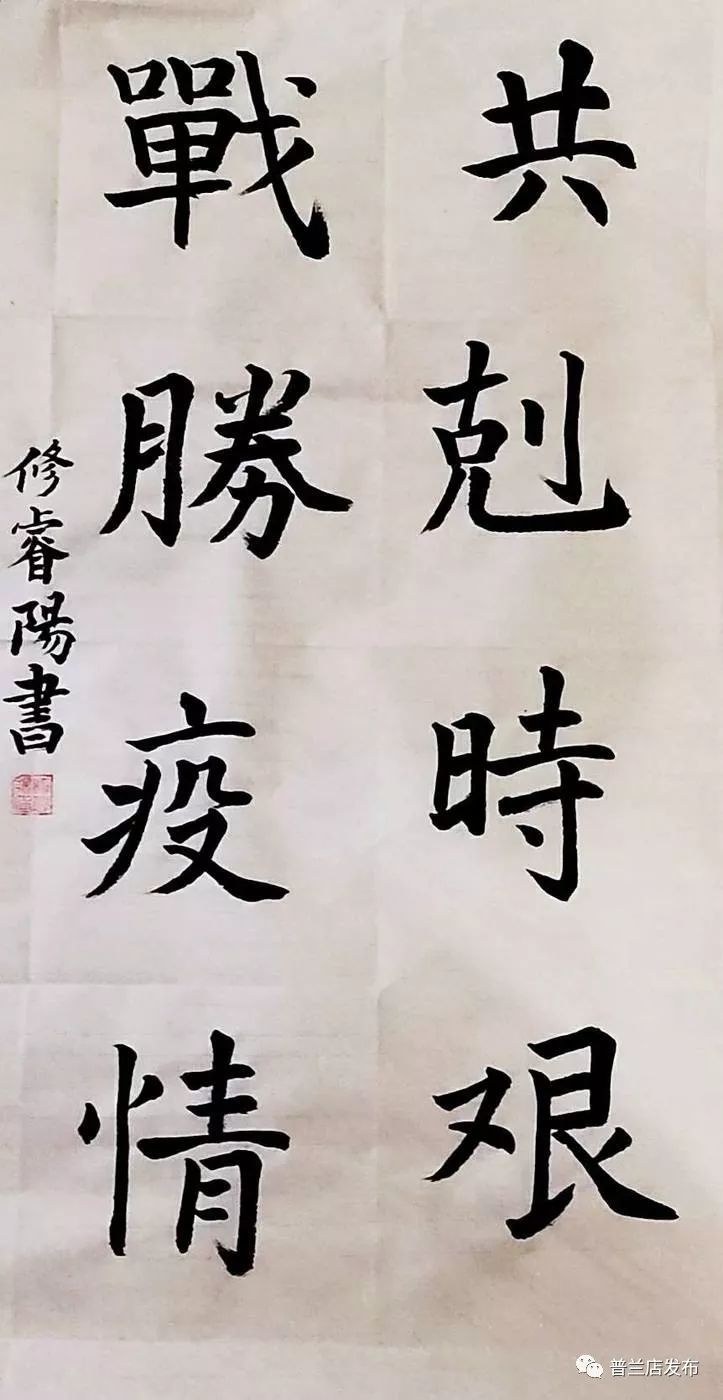 共剋時艱
戰勝疫情
修睿陽書
普兰店发布